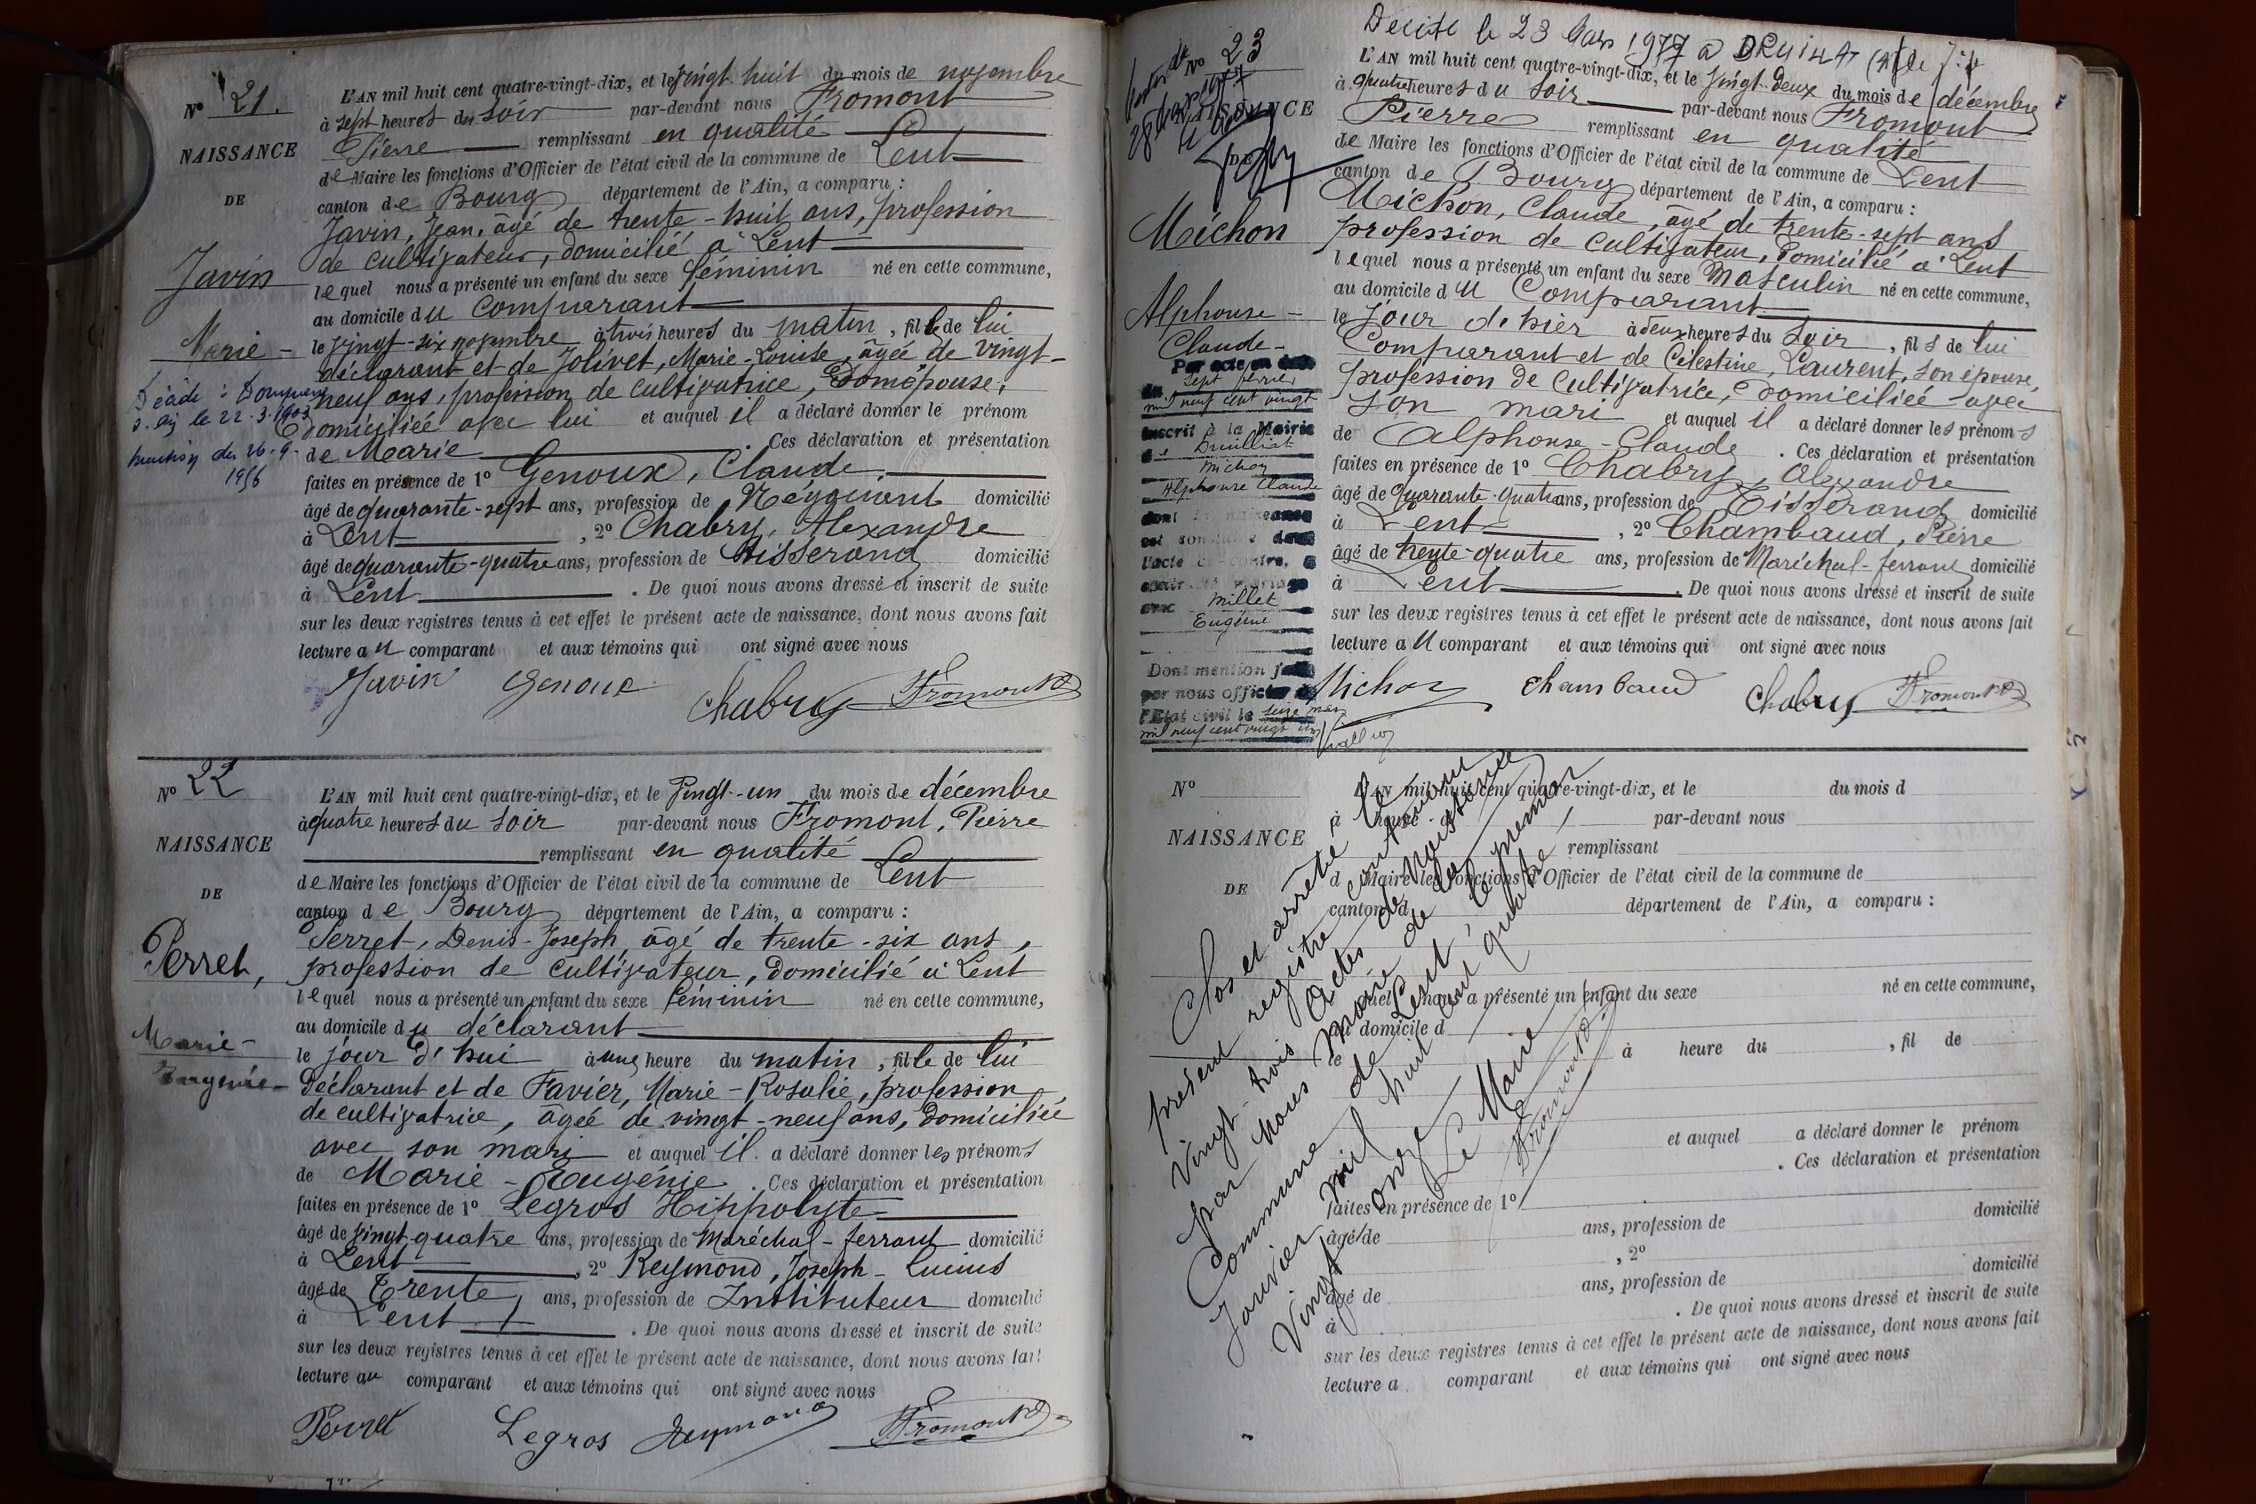 N° 21.
NAISSANCE
DE
Javin
Marie -
Décédé :
le 22.3.1903
du 26.9.
1956
L'AN mil huit cent quatre-vingt-dix, et le vingt huit du mois de novembre
à sept heures du soir par-devant nous Fromont
Pierre remplissant en qualité
de Maire les fonctions d'Officier de l'état civil de la commune de Lent
canton de Bourg département de l'Ain, a comparu :
Javin, Jean, âgé de trente-huit ans, profession
de cultivateur, domicilié à Lent
lequel nous a présenté un enfant du sexe féminin né en cette commune,
au domicile du comparant
le vingt-six novembre à trois heures du matin, fille de lui
déclarant et de Jolivet, Marie-Louise, âgée de vingt-
neuf ans, profession de cultivatrice, son épouse,
domiciliée avec lui et auquel il a déclaré donner le prénom
de Marie . Ces déclaration et présentation
faites en présence de 1° Genoux, Claude,
âgé de quarante-sept ans, profession de Négociant domicilié
à Lent , 2° Chabry, Alexandre
âgé de quarante-quatre ans, profession de Tisserand domicilié
à Lent . De quoi nous avons dressé et inscrit de suite
sur les deux registres tenus à cet effet le présent acte de naissance, dont nous avons fait
lecture au comparant et aux témoins qui ont signé avec nous
Javin Genoux Chabry Fromont
N° 22
NAISSANCE
DE
Perret,
Marie -
Eugénie -
L'AN mil huit cent quatre-vingt-dix, et le vingt-un du mois de décembre
à quatre heures du soir par-devant nous Fromont, Pierre
remplissant en qualité
de Maire les fonctions d'Officier de l'état civil de la commune de Lent
canton de Bourg département de l'Ain, a comparu :
Perret, Denis-Joseph, âgé de trente-six ans,
profession de cultivateur, domicilié à Lent
lequel nous a présenté un enfant du sexe féminin né en cette commune,
au domicile du déclarant
le jour d'hui à une heure du matin, fille de lui
déclarant et de Favier, Marie-Rosalie, profession
de cultivatrice, âgée de vingt-neuf ans, domiciliée
avec son mari et auquel il a déclaré donner les prénoms
de Marie - Eugénie . Ces déclaration et présentation
faites en présence de 1° Legros Hippolyte
âgé de vingt-quatre ans, profession de Maréchal-ferrant domicilié
à Lent , 2° Reymond, Joseph-Lucius
âgé de trente ans, profession de Instituteur domicilié
à Lent . De quoi nous avons dressé et inscrit de suite
sur les deux registres tenus à cet effet le présent acte de naissance, dont nous avons fait
lecture au comparant et aux témoins qui ont signé avec nous
Perret Legros Reymond Fromont
Décédé le 23 Mars 1977 à DRUILLAT
N° 23
NAISSANCE
Michon
Alphonse -
Claude -
Par acte en date
du sept février
mil neuf cent vingt
inscrit à la Mairie
de Druillat
Michon
Alphonse Claude
dont la naissance
est constatée dans
l'acte ci-contre, a
contracté mariage
avec Millet
Eugénie
Dont mention faite
par nous officier de
l'Etat civil le seize mars
mil neuf cent vingt
L'AN mil huit cent quatre-vingt-dix, et le vingt-deux du mois de décembre
à quatre heures du soir par-devant nous Fromont
Pierre remplissant en qualité
de Maire les fonctions d'Officier de l'état civil de la commune de Lent
canton de Bourg département de l'Ain, a comparu :
Michon, Claude, âgé de trente-sept ans
profession de cultivateur, domicilié à Lent
lequel nous a présenté un enfant du sexe Masculin né en cette commune,
au domicile du Comparant
le jour d'hier à deux heures du soir, fils de lui
Comparant et de Célestine, Laurent, son épouse,
profession de cultivatrice, domiciliée avec
son mari et auquel il a déclaré donner les prénoms
de Alphonse-Claude . Ces déclaration et présentation
faites en présence de 1° Chabry, Alexandre
âgé de quarante-quatre ans, profession de Tisserand domicilié
à Lent , 2° Chambaud, Pierre
âgé de trente-quatre ans, profession de Maréchal-ferrant domicilié
à Lent . De quoi nous avons dressé et inscrit de suite
sur les deux registres tenus à cet effet le présent acte de naissance, dont nous avons fait
lecture au comparant et aux témoins qui ont signé avec nous
Michon Chambaud Chabry Fromont
N°
NAISSANCE
DE
L'AN mil huit cent quatre-vingt-dix, et le du mois d
à heure d par-devant nous
remplissant
d Maire les fonctions d'Officier de l'état civil de la commune de
canton d département de l'Ain, a comparu :
lequel nous a présenté un enfant du sexe né en cette commune,
au domicile d
le à heure du , fil de
et auquel a déclaré donner le prénom
. Ces déclaration et présentation
faites en présence de 1°
âgé de ans, profession de domicilié
, 2°
âgé de ans, profession de domicilié
à . De quoi nous avons dressé et inscrit de suite
sur les deux registres tenus à cet effet le présent acte de naissance, dont nous avons fait
lecture a comparant et aux témoins qui ont signé avec nous
Clos et arrêté le
présent registre contenant
vingt-trois actes de naissance
par nous Maire de la
Commune de Lent le premier
Janvier mil huit cent quatre
vingt onze
Le Maire
Fromont